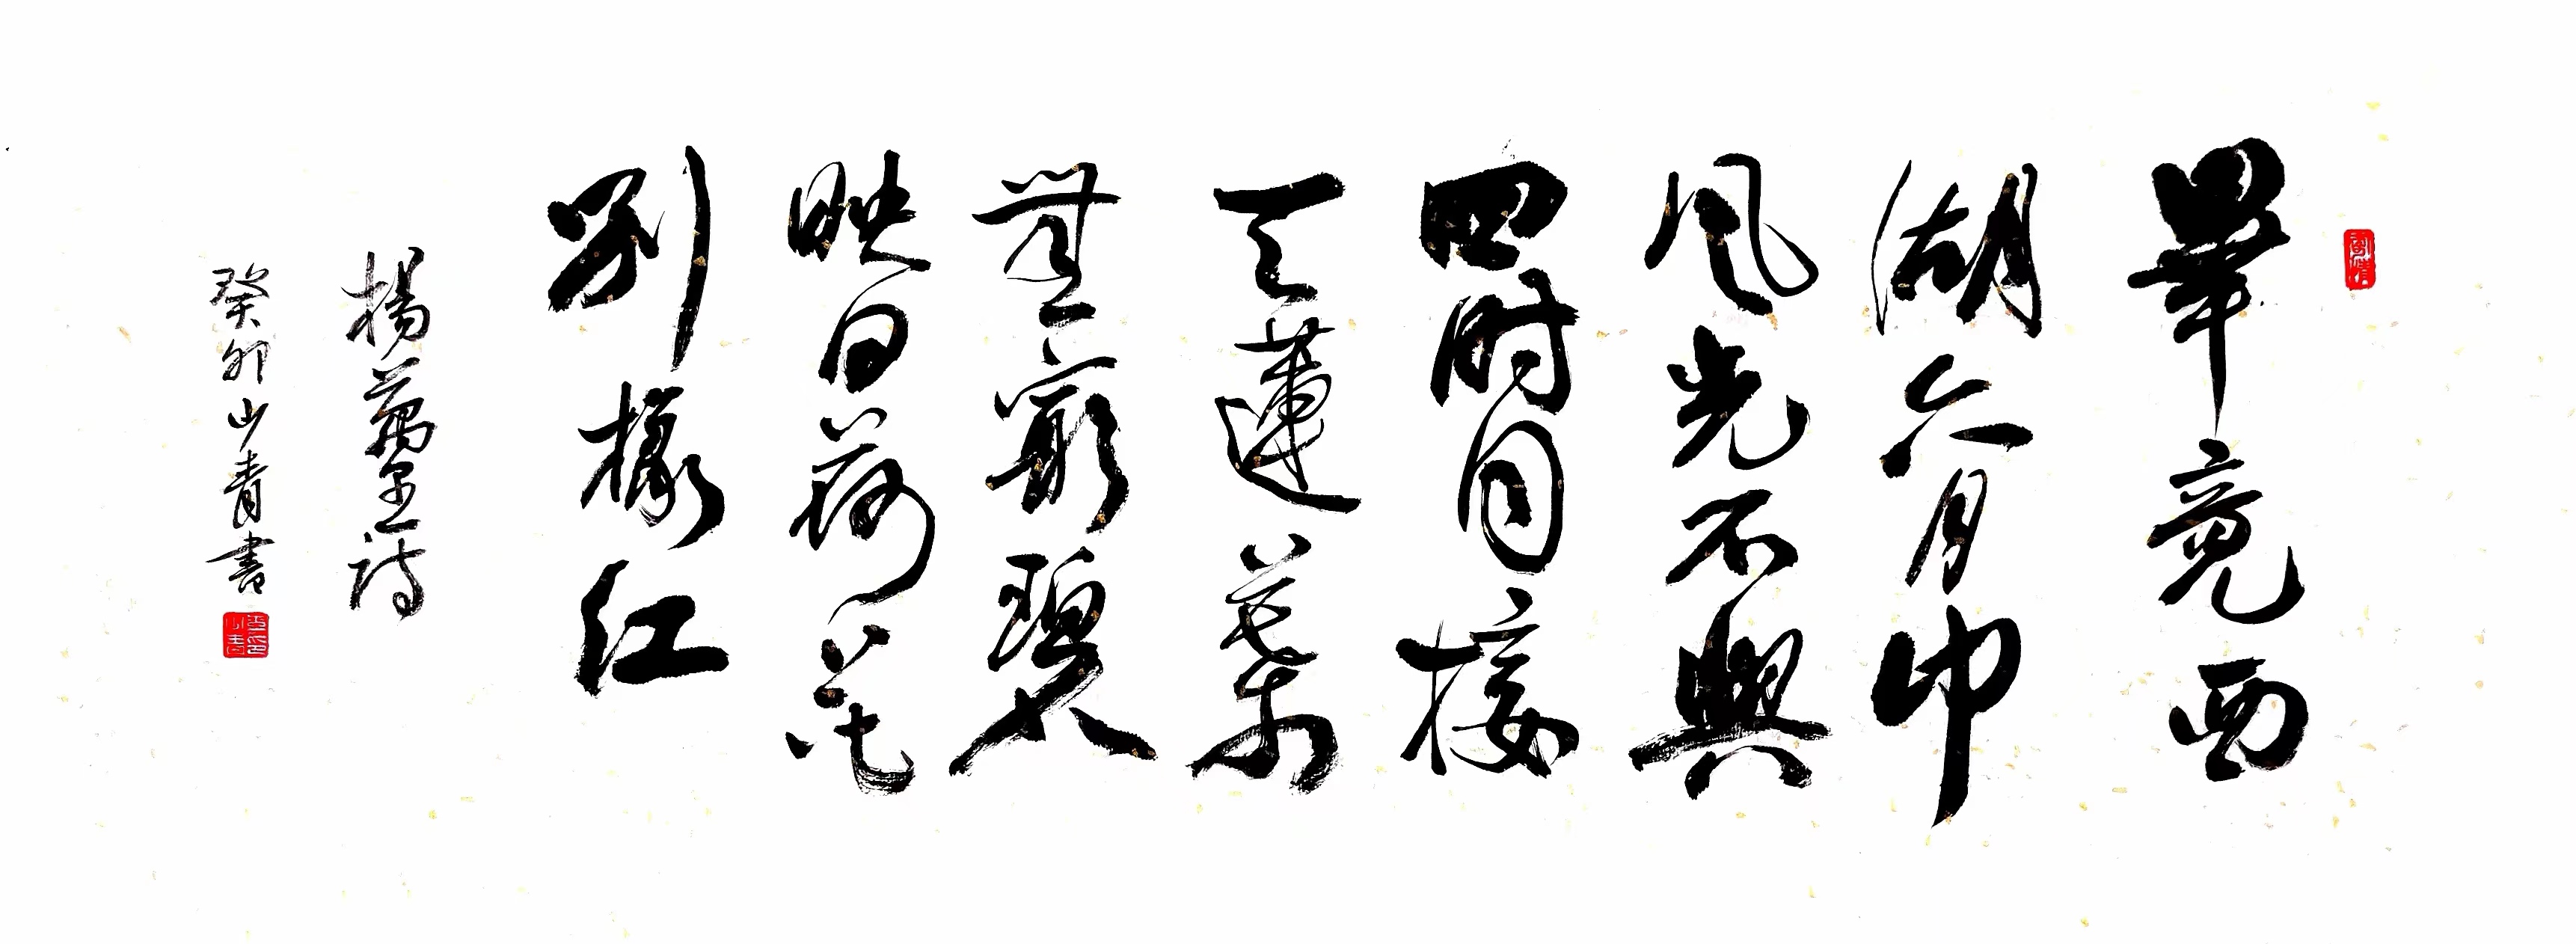 畢竟西
湖六月中
風光不與
四時同接
天蓮葉
無窮碧
映日荷花
別樣紅
楊萬里詩
癸卯山青書